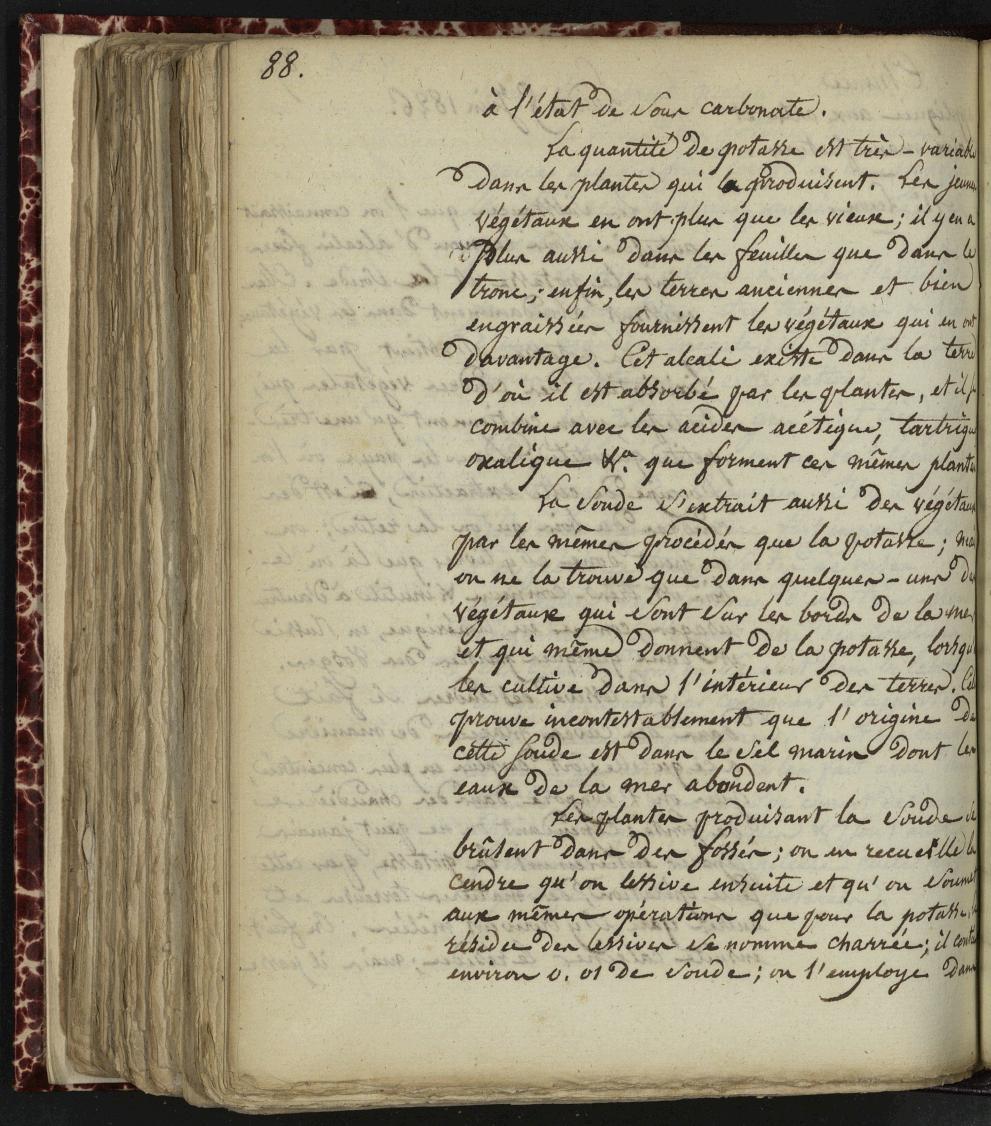 88.
à l'état de sous carbonate.
La quantité de potasse est très-variable
dans les plantes qui la produisent. Les jeunes
végétaux en ont plus que les vieux; il y en a
plus aussi dans les feuilles que dans le
tronc; enfin, les terres anciennes et bien
engraissées fournissent les végétaux qui en ont
davantage. Cet alcali existe dans la terre
d'où il est absorbé par les plantes, et il
combine avec les acides acétique, tartrique
oxalique &a. que forment ces mêmes plantes
La soude s'extrait aussi des végétaux
par les mêmes procédés que la potasse; mai
on ne la trouve que dans quelques-uns de
végétaux qui sont sur les bords de la mer
et qui même donnent de la potasse, lorsqu
les cultive dans l'intérieur des terres. Cel
prouve incontestablement que l'origine de
cette soude est dans le sel marin dont les
eaux de la mer abondent.
Les plantes produisant la soude se
brûlent dans des fossés; on en recueille la
cendre qu'on lessive ensuite et qu'on soumet
aux mêmes opérations que pour la potasse,
résidu des lessives se nomme charrée; il cont
environ 0.01 de soude; on l'employe dans